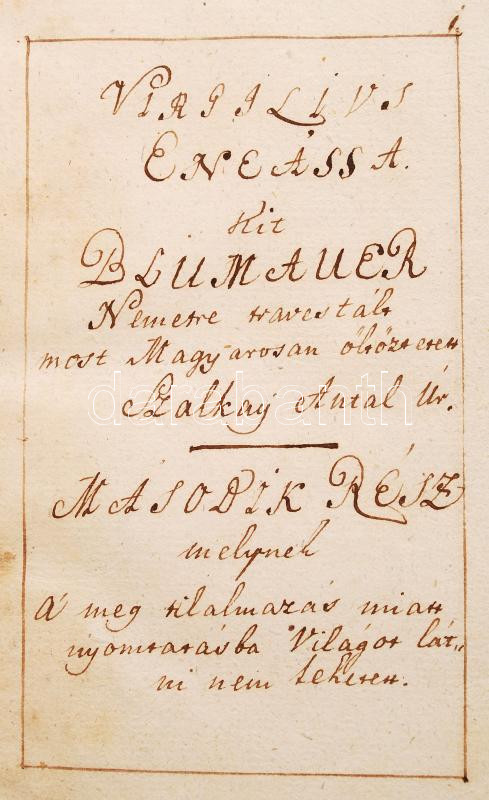 1.
VIRGILIVS
ENEÁSSA.
Kit
BLUMAUER
Nemetre travestált
most Magyarosan öltöztetett
Szalkay Antal Úr.
MÁSODIK RÉSZ
melynek
A' meg tilalmazás miatt
nyomtatásba Világot lát„
ni nem lehetett.
darabanth